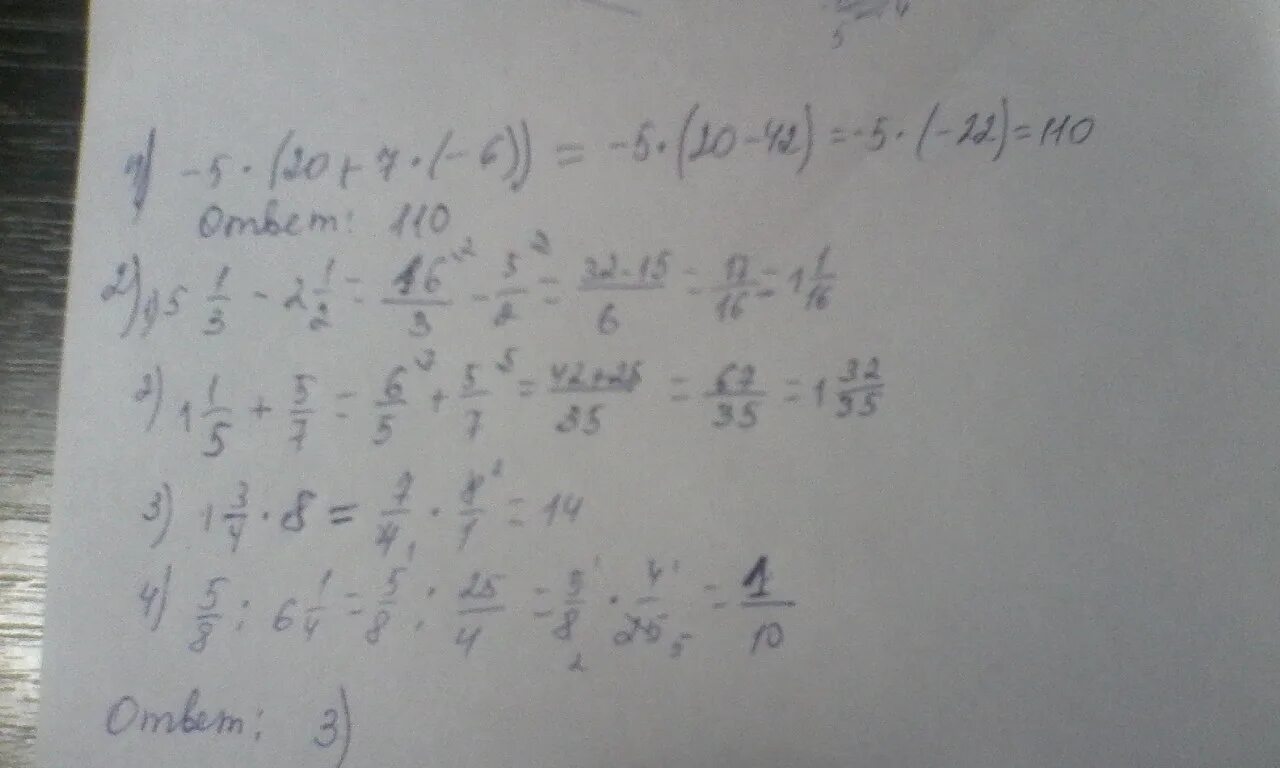 1) -5 · (20 + 7 · (-6)) = -5 · (20 - 42) = -5 · (-22) = 110
Ответ: 110
2) 1) 5 1/3 - 2 1/2 = 16/3 - 5/2 = 32-15/6 = 17/16 = 1 1/16
2) 1 1/5 + 5/7 = 6/5 + 5/7 = 42+25/35 = 67/35 = 1 32/35
3) 1 3/4 · 8 = 7/4 · 8/1 = 14
4) 5/8 : 6 1/4 = 5/8 : 25/4 = 5/8 · 4/25 = 1/10
Ответ: 3)